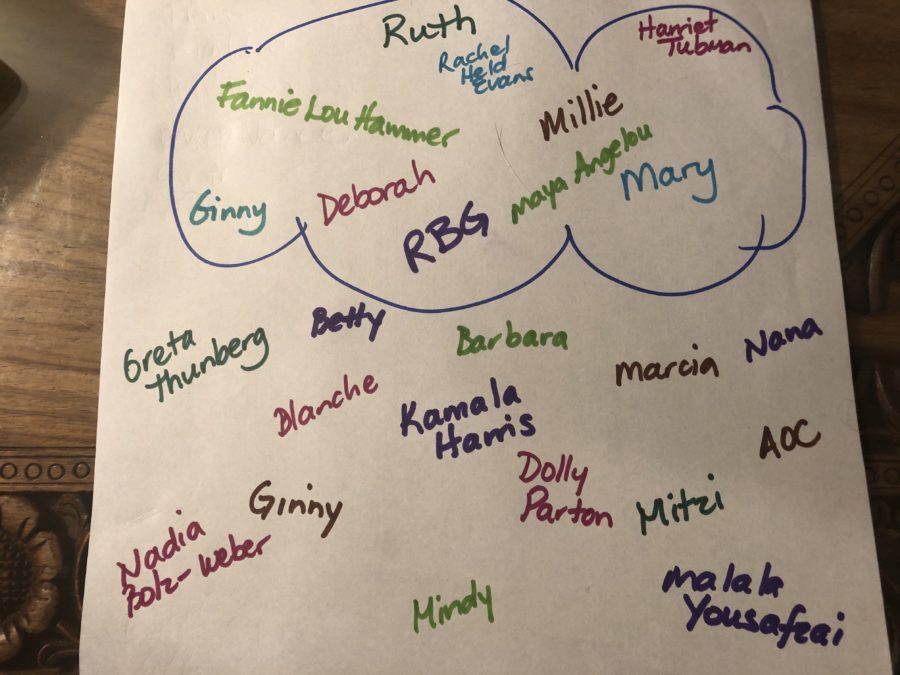 Ruth
Rachel
Held
Evans
Harriet
Tubman
Fannie Lou Hammer
Millie
Maya Angelou
Ginny
Deborah
RBG
Mary
Greta
Thunberg
Betty
Barbara
Marcia
Nana
Blanche
Kamala
Harris
AOC
Dolly
Parton
Mitzi
Ginny
Nadia
Bolz-Weber
Mindy
Malala
Yousafzai